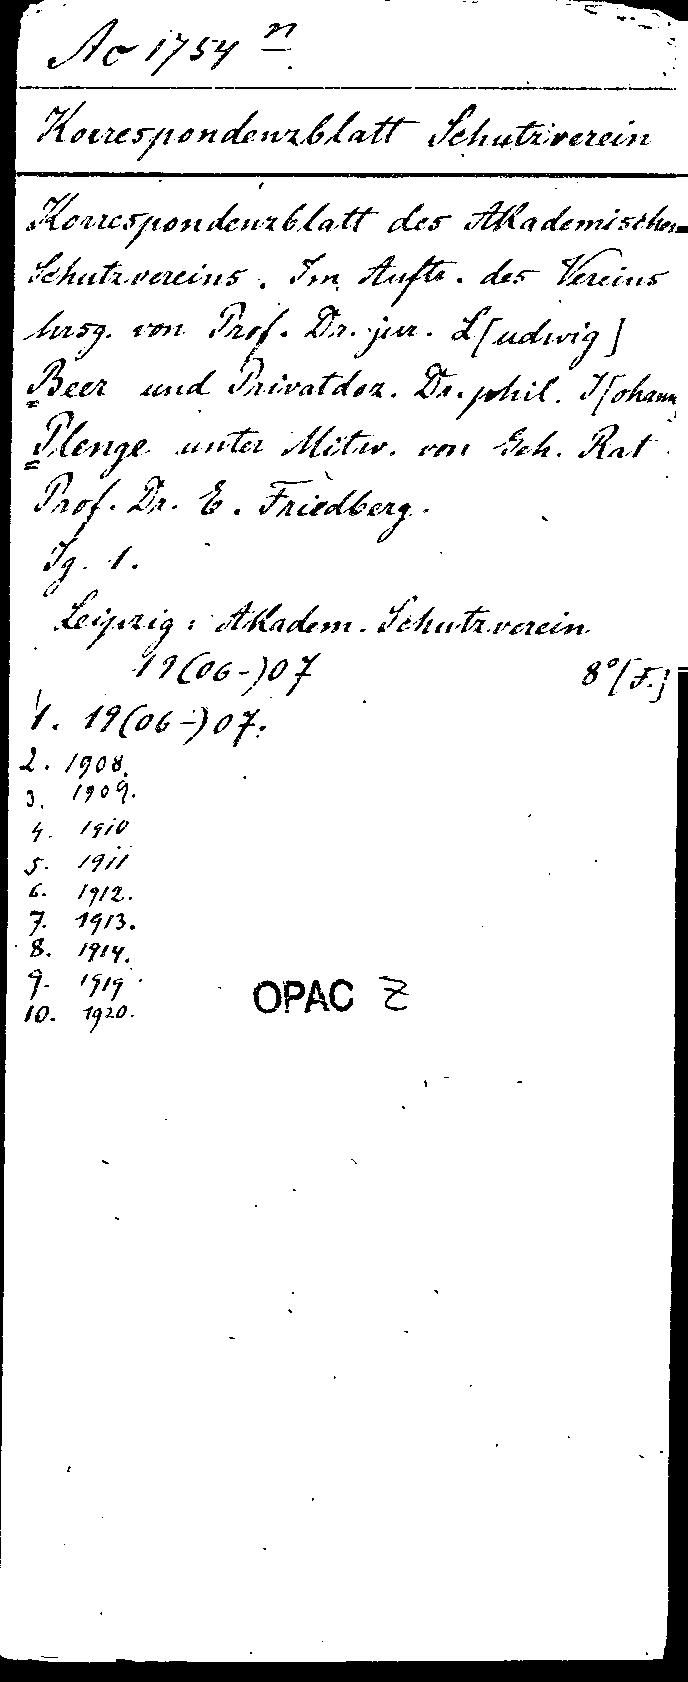 Ac 1754 n
Korrespondenzblatt Schutzverein
Korrespondenzblatt des Akademischen
Schutzvereins. Im Auftr. des Vereins
hrsg. von Prof. Dr. jur. L[udwig]
Beer und Privatdoz. Dr. phil. J[ohann]
Plenge unter Mitw. von Geh. Rat
Prof. Dr. E. Friedberg.
Jg. 1.
Leipzig: Akadem. Schutzverein
19(06-)07 8°[F.]
1. 19(06-)07.
2. 1908.
3. 1909.
4. 1910
5. 1911
6. 1912.
7. 1913.
8. 1914.
9. 1919
10. 1920.
OPAC Z